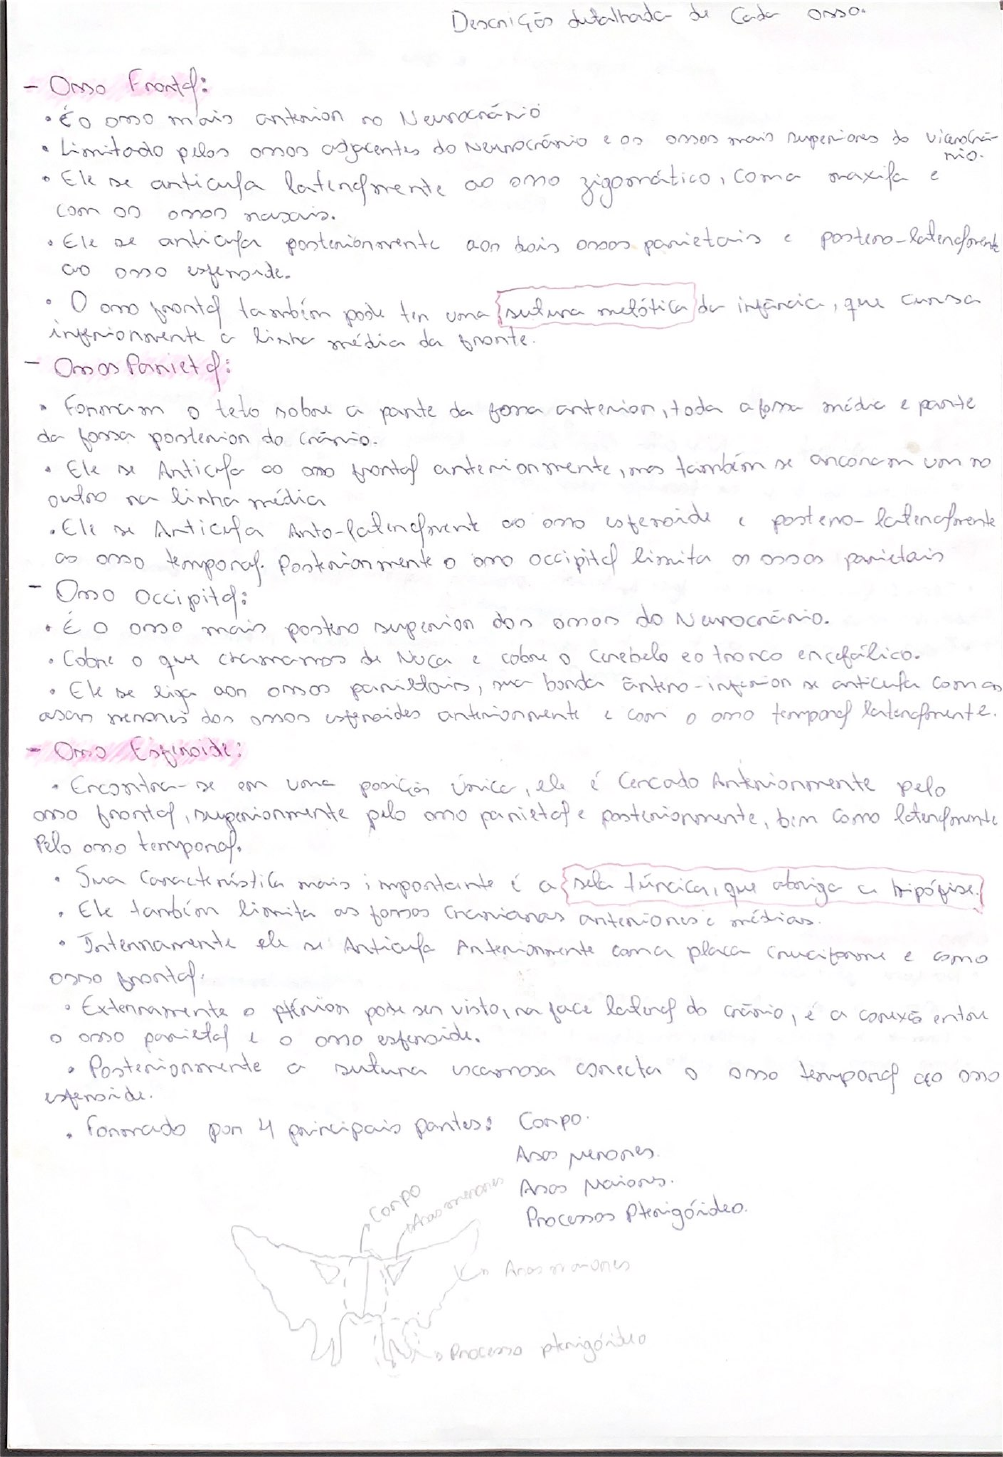 Descrição detalhada de cada osso.
- Osso Frontal:
• É o osso mais anterior no Neurocrânio
• Limitado pelos ossos adjacentes do Neurocrânio e os ossos mais superiores do viscerocrâ-
nio.
• Ele se articula lateralmente ao osso zigomático, com a maxila e
com os ossos nasais.
• Ele se articula posteriormente aos dois ossos parietais e postero-lateralmente
ao osso esfenoide.
• O osso frontal também pode ter uma sutura metótica da infância, que cursa
inferiormente a linha média da fronte.
- Ossos Parietal:
• Formam o teto sobre a parte da fossa anterior, toda a fossa média e parte
da fossa posterior do crânio.
• Ele se Articula ao osso frontal anteriormente, mas também se ancoram um no
outro na linha média
• Ele se Articula Anto-lateralmente ao osso esfenoide e postero-lateralmente
ao osso temporal. Posteriormente o osso occipital limita os ossos parietais
- Osso Occipital:
• É o osso mais postero superior dos ossos do Neurocrânio.
• Cobre o que chamamos de Nuca e cobre o cerebelo e o tronco encefálico.
• Ele se liga aos ossos parietais, sua borda ântero-inferior se articula com as
asas menores dos ossos esfenoides anteriormente e com o osso temporal lateralmente.
- Osso Esfenoide:
• Encontra-se em uma posição única, ele é cercado Anteriormente pelo
osso frontal, superiormente pelo osso parietal e posteriormente, bem como lateralmente
Pelo osso temporal.
• Sua característica mais importante é a sela túrcica, que abriga a hipófise.
• Ele também limita as fossas cranianas anteriores e médias.
• Internamente ele se Articula Anteriormente com a placa cruciforme e com o
osso frontal.
• Externamente o ptérion pode ser visto, na face lateral do crânio, é a conexão entre
o osso parietal e o osso esfenoide.
• Posteriormente a sutura escamosa conecta o osso temporal ao osso
esfenoide.
• Formado por 4 principais partes: Corpo.
Asas Menores.
Asas Maiores.
Processos Pterigóideo.
Corpo
Asas menores
Asas maiores
Processo pterigóideo